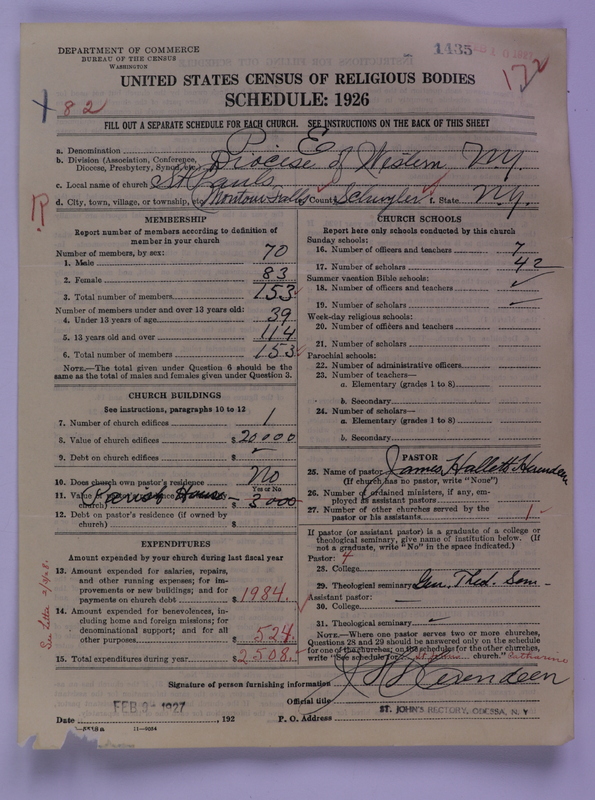 DEPARTMENT OF COMMERCE
BUREAU OF THE CENSUS
WASHINGTON
1435
172
UNITED STATES CENSUS OF RELIGIOUS BODIES
SCHEDULE: 1926
x 82
FILL OUT A SEPARATE SCHEDULE FOR EACH CHURCH. SEE INSTRUCTIONS ON THE BACK OF THIS SHEET
a. Denomination P. E.
b. Division (Association, Conference, Diocese, Presbytery, Synod, etc.) Diocese of Western N.Y.
c. Local name of church St Pauls
d. City, town, village, or township, etc. Montour Falls County Schuyler f. State N.Y.
MEMBERSHIP
Report number of members according to definition of member in your church
Number of members, by sex:
1. Male 70
2. Female 83
3. Total number of members 153
Number of members under and over 13 years old:
4. Under 13 years of age 39
5. 13 years old and over 114
6. Total number of members 153
NOTE.—The total given under Question 6 should be the same as the total of males and females given under Question 3.
CHURCH BUILDINGS
See instructions, paragraphs 10 to 12
7. Number of church edifices 1
8. Value of church edifices $20000
9. Debt on church edifices $
10. Does church own pastor's residence No
Yes or No
11. Value
Parish House
church) $ 3000
12. Debt on pastor's residence (if owned by church) $
EXPENDITURES
Amount expended by your church during last fiscal year
13. Amount expended for salaries, repairs, and other running expenses; for improvements or new buildings; and for payments on church debt $1984.
14. Amount expended for benevolences, including home and foreign missions; for denominational support; and for all other purposes $ 524.
15. Total expenditures during year $2508.
See Letter 2/4/28.
CHURCH SCHOOLS
Report here only schools conducted by this church
Sunday schools:
16. Number of officers and teachers 7
17. Number of scholars 42
Summer vacation Bible schools:
18. Number of officers and teachers
19. Number of scholars
Week-day religious schools:
20. Number of officers and teachers
21. Number of scholars
Parochial schools:
22. Number of administrative officers
23. Number of teachers—
a. Elementary (grades 1 to 8)
b. Secondary
24. Number of scholars—
a. Elementary (grades 1 to 8)
b. Secondary
PASTOR
25. Name of pastor James Hallett Herendeen
(If church has no pastor, write "None")
26. Number of ordained ministers, if any, employed as assistant pastors
27. Number of other churches served by the pastor or his assistants 1
If pastor (or assistant pastor) is a graduate of a college or theological seminary, give name of institution below. (If not a graduate, write "No" in the space indicated.)
Pastor: 4
28. College
29. Theological seminary Gen. Theol. Sem
Assistant pastor:
30. College
31. Theological seminary
NOTE.—Where one pastor serves two or more churches, Questions 28 and 29 should be answered only on the schedule for one of the churches; on the schedules for the other churches, write "See schedule for St Johns church." Catharine
Signature of person furnishing information J H Herendeen
Official title
FEB 9 - 1927
Date , 192 P. O. Address ST. JOHN'S RECTORY, ODESSA, N. Y
11—9034